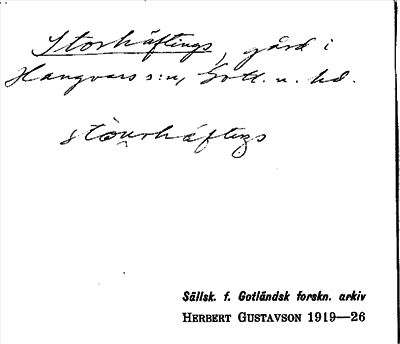 Storhäftings, gård i
Hangvars s:n, Gotl. n. hd.
stòu̯rháftıŋs
Sällsk. f. Gotländsk forskn. arkiv
HERBERT GUSTAVSON 1919—26